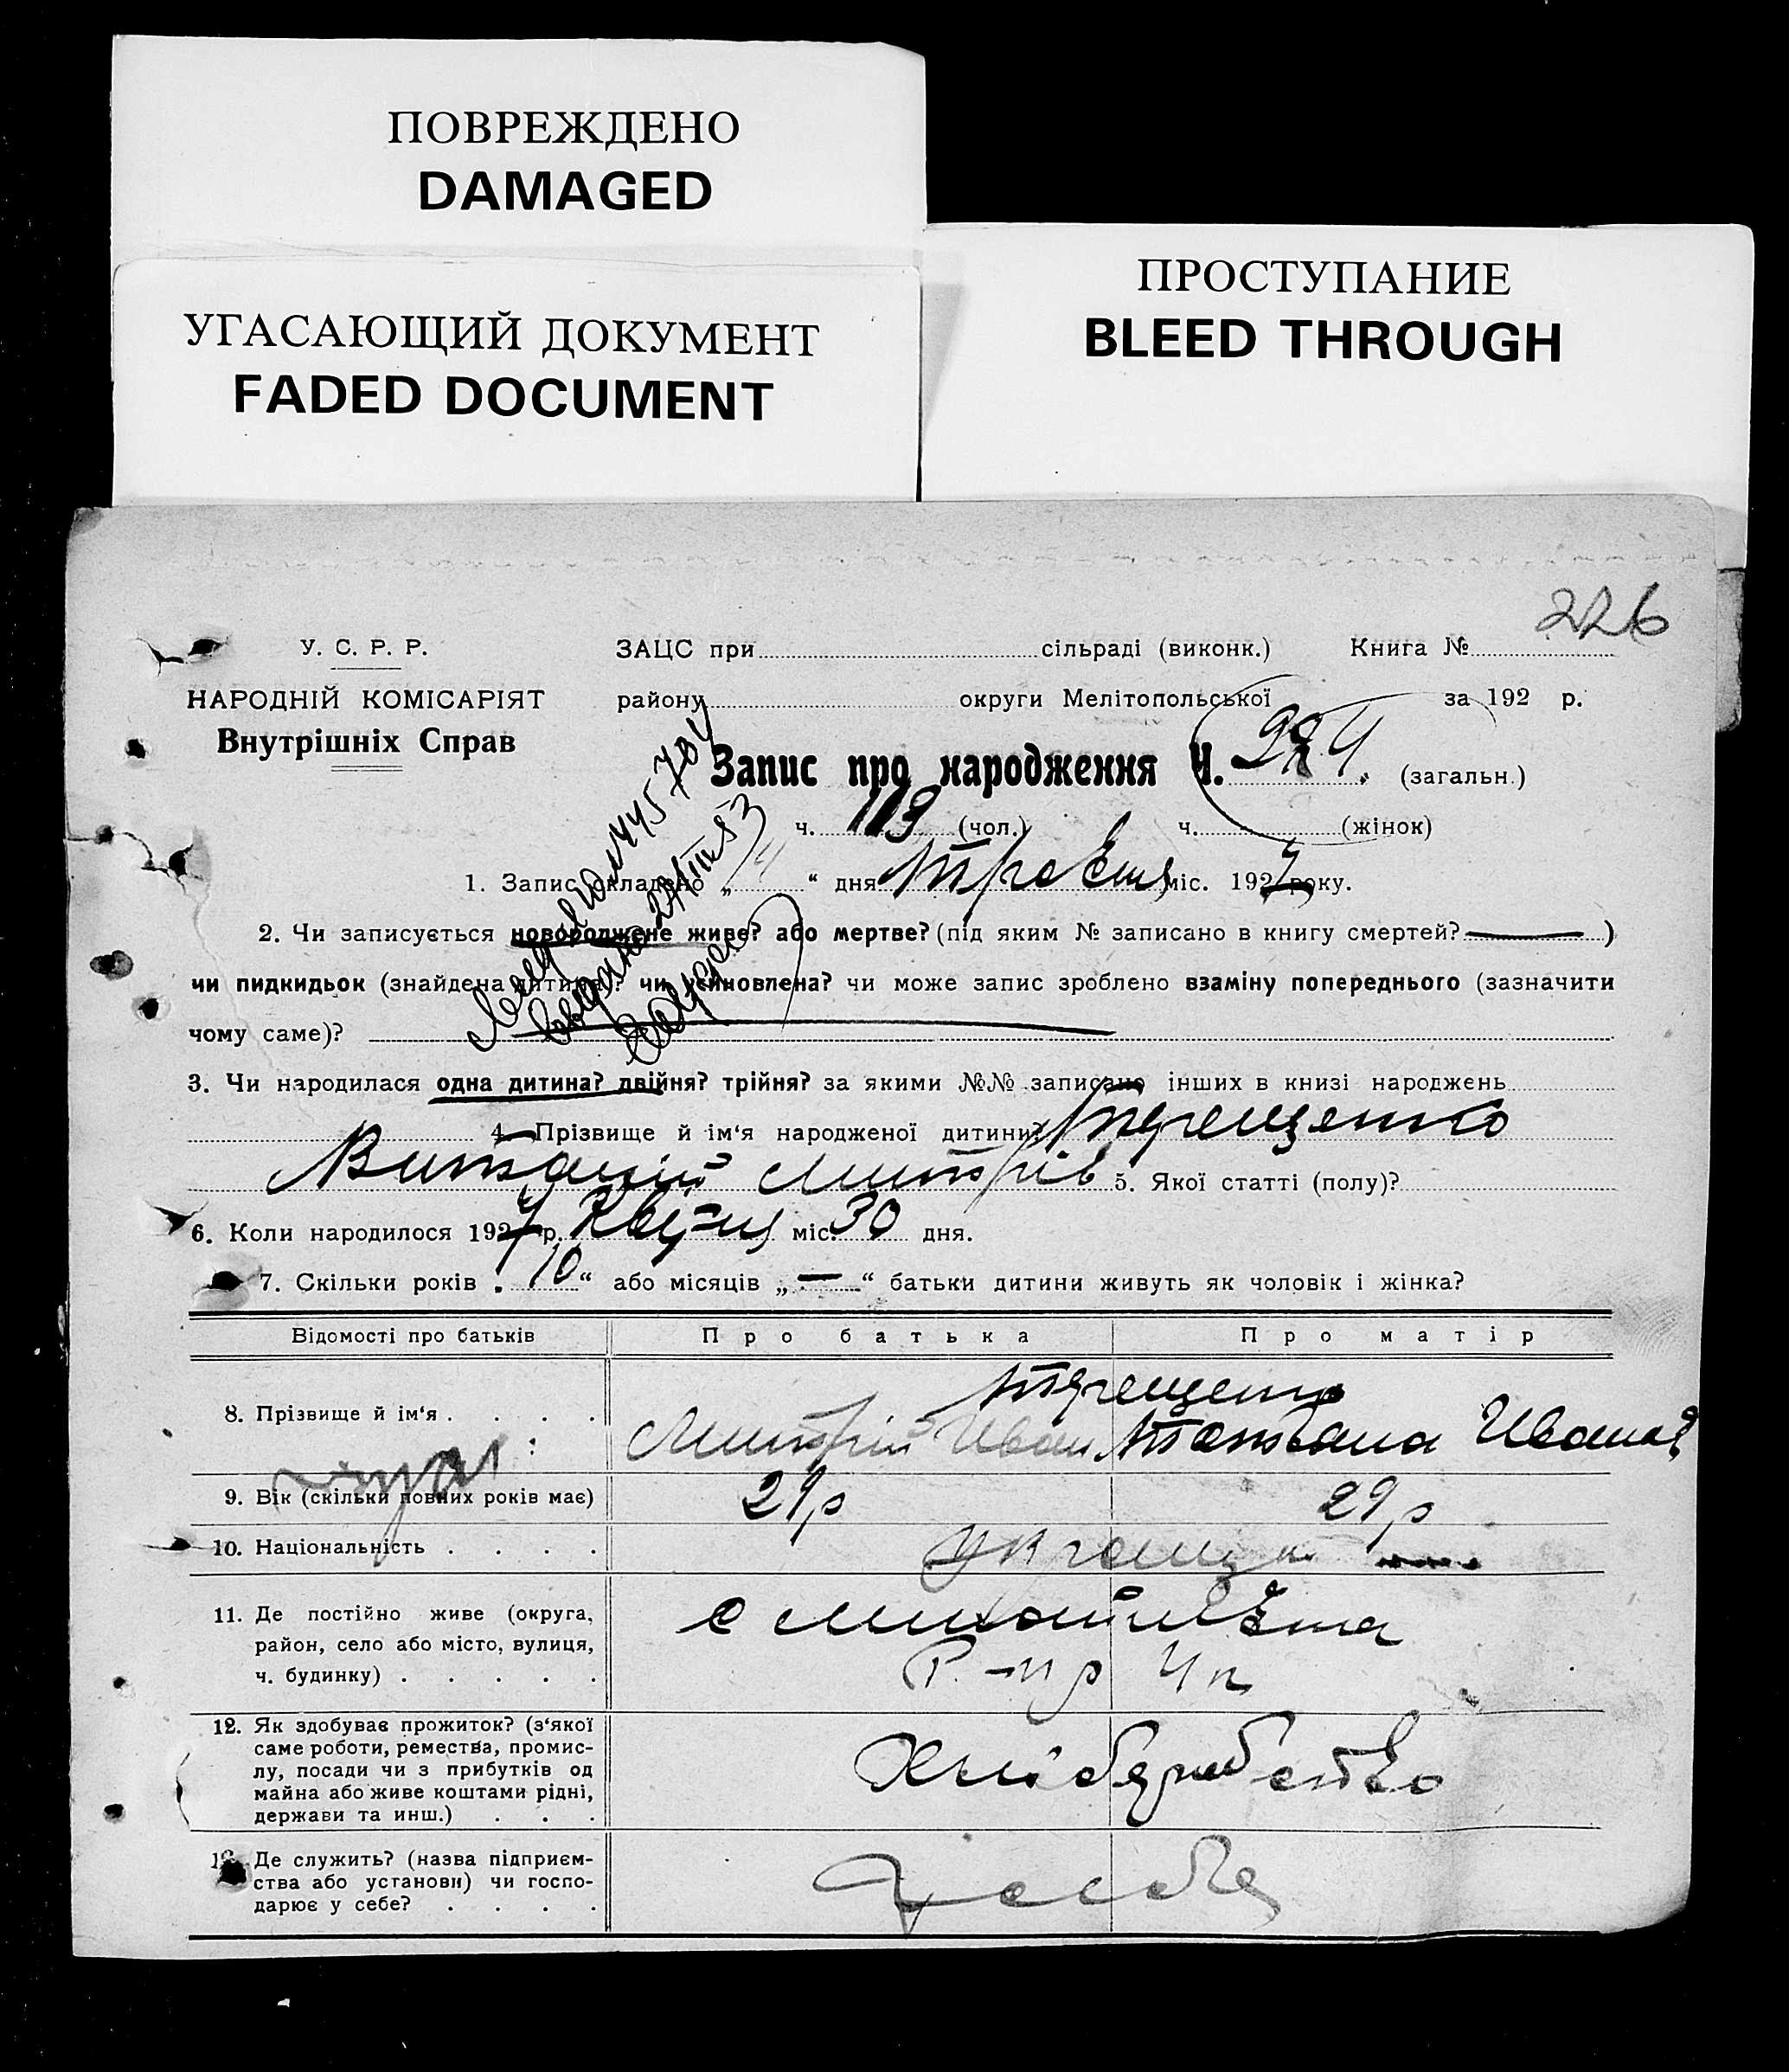 ПОВРЕЖДЕНО
DAMAGED
УГАСАЮЩИЙ ДОКУМЕНТ
FADED DOCUMENT
ПРОСТУПАНИЕ
BLEED THROUGH
226
У. С. Р. Р.
НАРОДНІЙ КОМІСАРІЯТ
Внутрішніх Справ
ЗАЦС при сільраді (виконк.) Книга №
району округи Мелітопольської за 192 р.
Запис про народження Ч. (загальн.)
ч. 113 (чол.) ч. (жінок)
1. Запис складено „14“ дня Травня міс. 1927 року.
2. Чи записується новороджене живе? або мертве? (під яким № записано в книгу смертей? )
чи пидкидьок (знайдена дитина)? чи усиновлена? чи може запис зроблено взаміну попереднього (зазначити
чому саме)?
3. Чи народилася одна дитина? двійня? трійня? за якими №№ записано інших в книзі народжень
4. Прізвище й ім‘я народженої дитини? Терещенко
Виталій Митрів 5. Якої статті (полу)?
6. Коли народилося 1927 р. Квітня міс. 30 дня.
7. Скільки років „10“ або місяців „—“ батьки дитини живуть як чоловік і жінка?
Відомості про батьків Про батька Про матір
8. Прізвище й ім‘я . . . . Терещенко
Митрій Иван Татьяна Иванов
9. Вік (скільки повних років має) 29 р 29 р
10. Національність . . . . Украінці
11. Де постійно живе (округа,
район, село або місто, вулиця,
ч. будинку) . . . . .
с
12. Як здобуває прожиток? (з‘якої
саме роботи, ремества, промис-
лу, посади чи з прибутків од
майна або живе коштами рідні,
держави та инш.) . . .
Хліборобство
13. Де служить? (назва підприєм-
ства або установи) чи госпо-
дарює у себе? . . . .
У себе